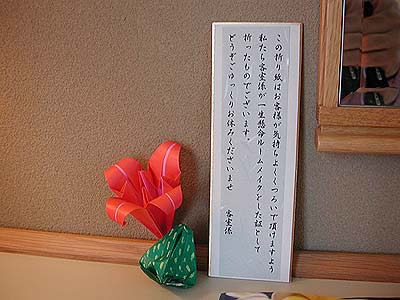 この折り紙はお客様が気持ちよくくつろいで頂けますよう
私たち客室係が一生懸命ルームメイクをした証として
折ったものでございます。
どうぞごゆっくりお休みくださいませ
客室係